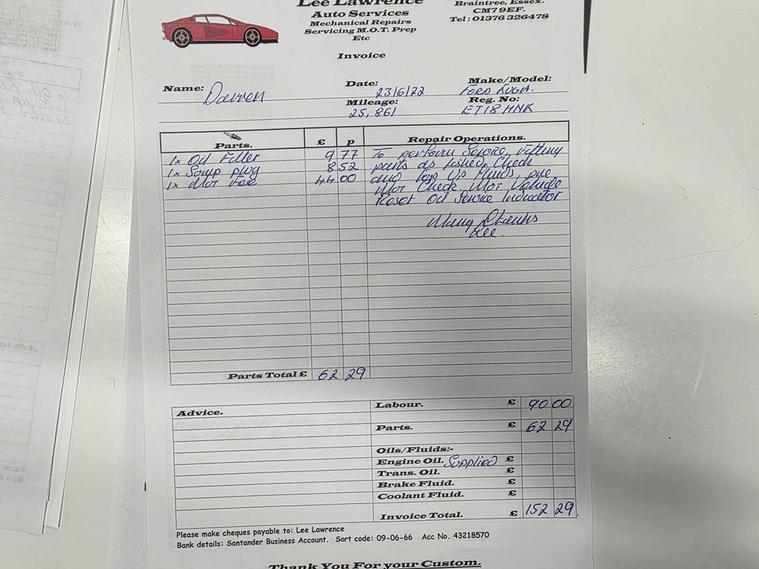 Lee Lawrence
Auto Services
Mechanical Repairs
Servicing M.O.T. Prep
Etc
Braintree, Essex.
CM7 9EF.
Tel : 01376 326478
Invoice
Name: Darren
Date: 23/6/22
Make/Model: FORD KUGA.
Mileage: 25,861
Reg. No: ET18 HNK
Parts. £ p Repair Operations.
1x Oil Filter 9 77 To perform Service, fitting
1x Sump plug 8 52 parts as listed, Check
1x MOT Fee 44 00 and top up fluids, pre
MOT Check, MOT Vehicle
Reset Oil Service Indicator
Many Thanks
Lee.
Parts Total £ 62 29
Advice.
Labour. £ 90 00
Parts. £ 62 29
Oils/Fluids:-
Engine Oil. Supplied £
Trans. Oil. £
Brake Fluid. £
Coolant Fluid. £
Invoice Total. £ 152 29
Please make cheques payable to: Lee Lawrence
Bank details: Santander Business Account. Sort code: 09-06-66 Acc No. 43218570
Thank You For your Custom.